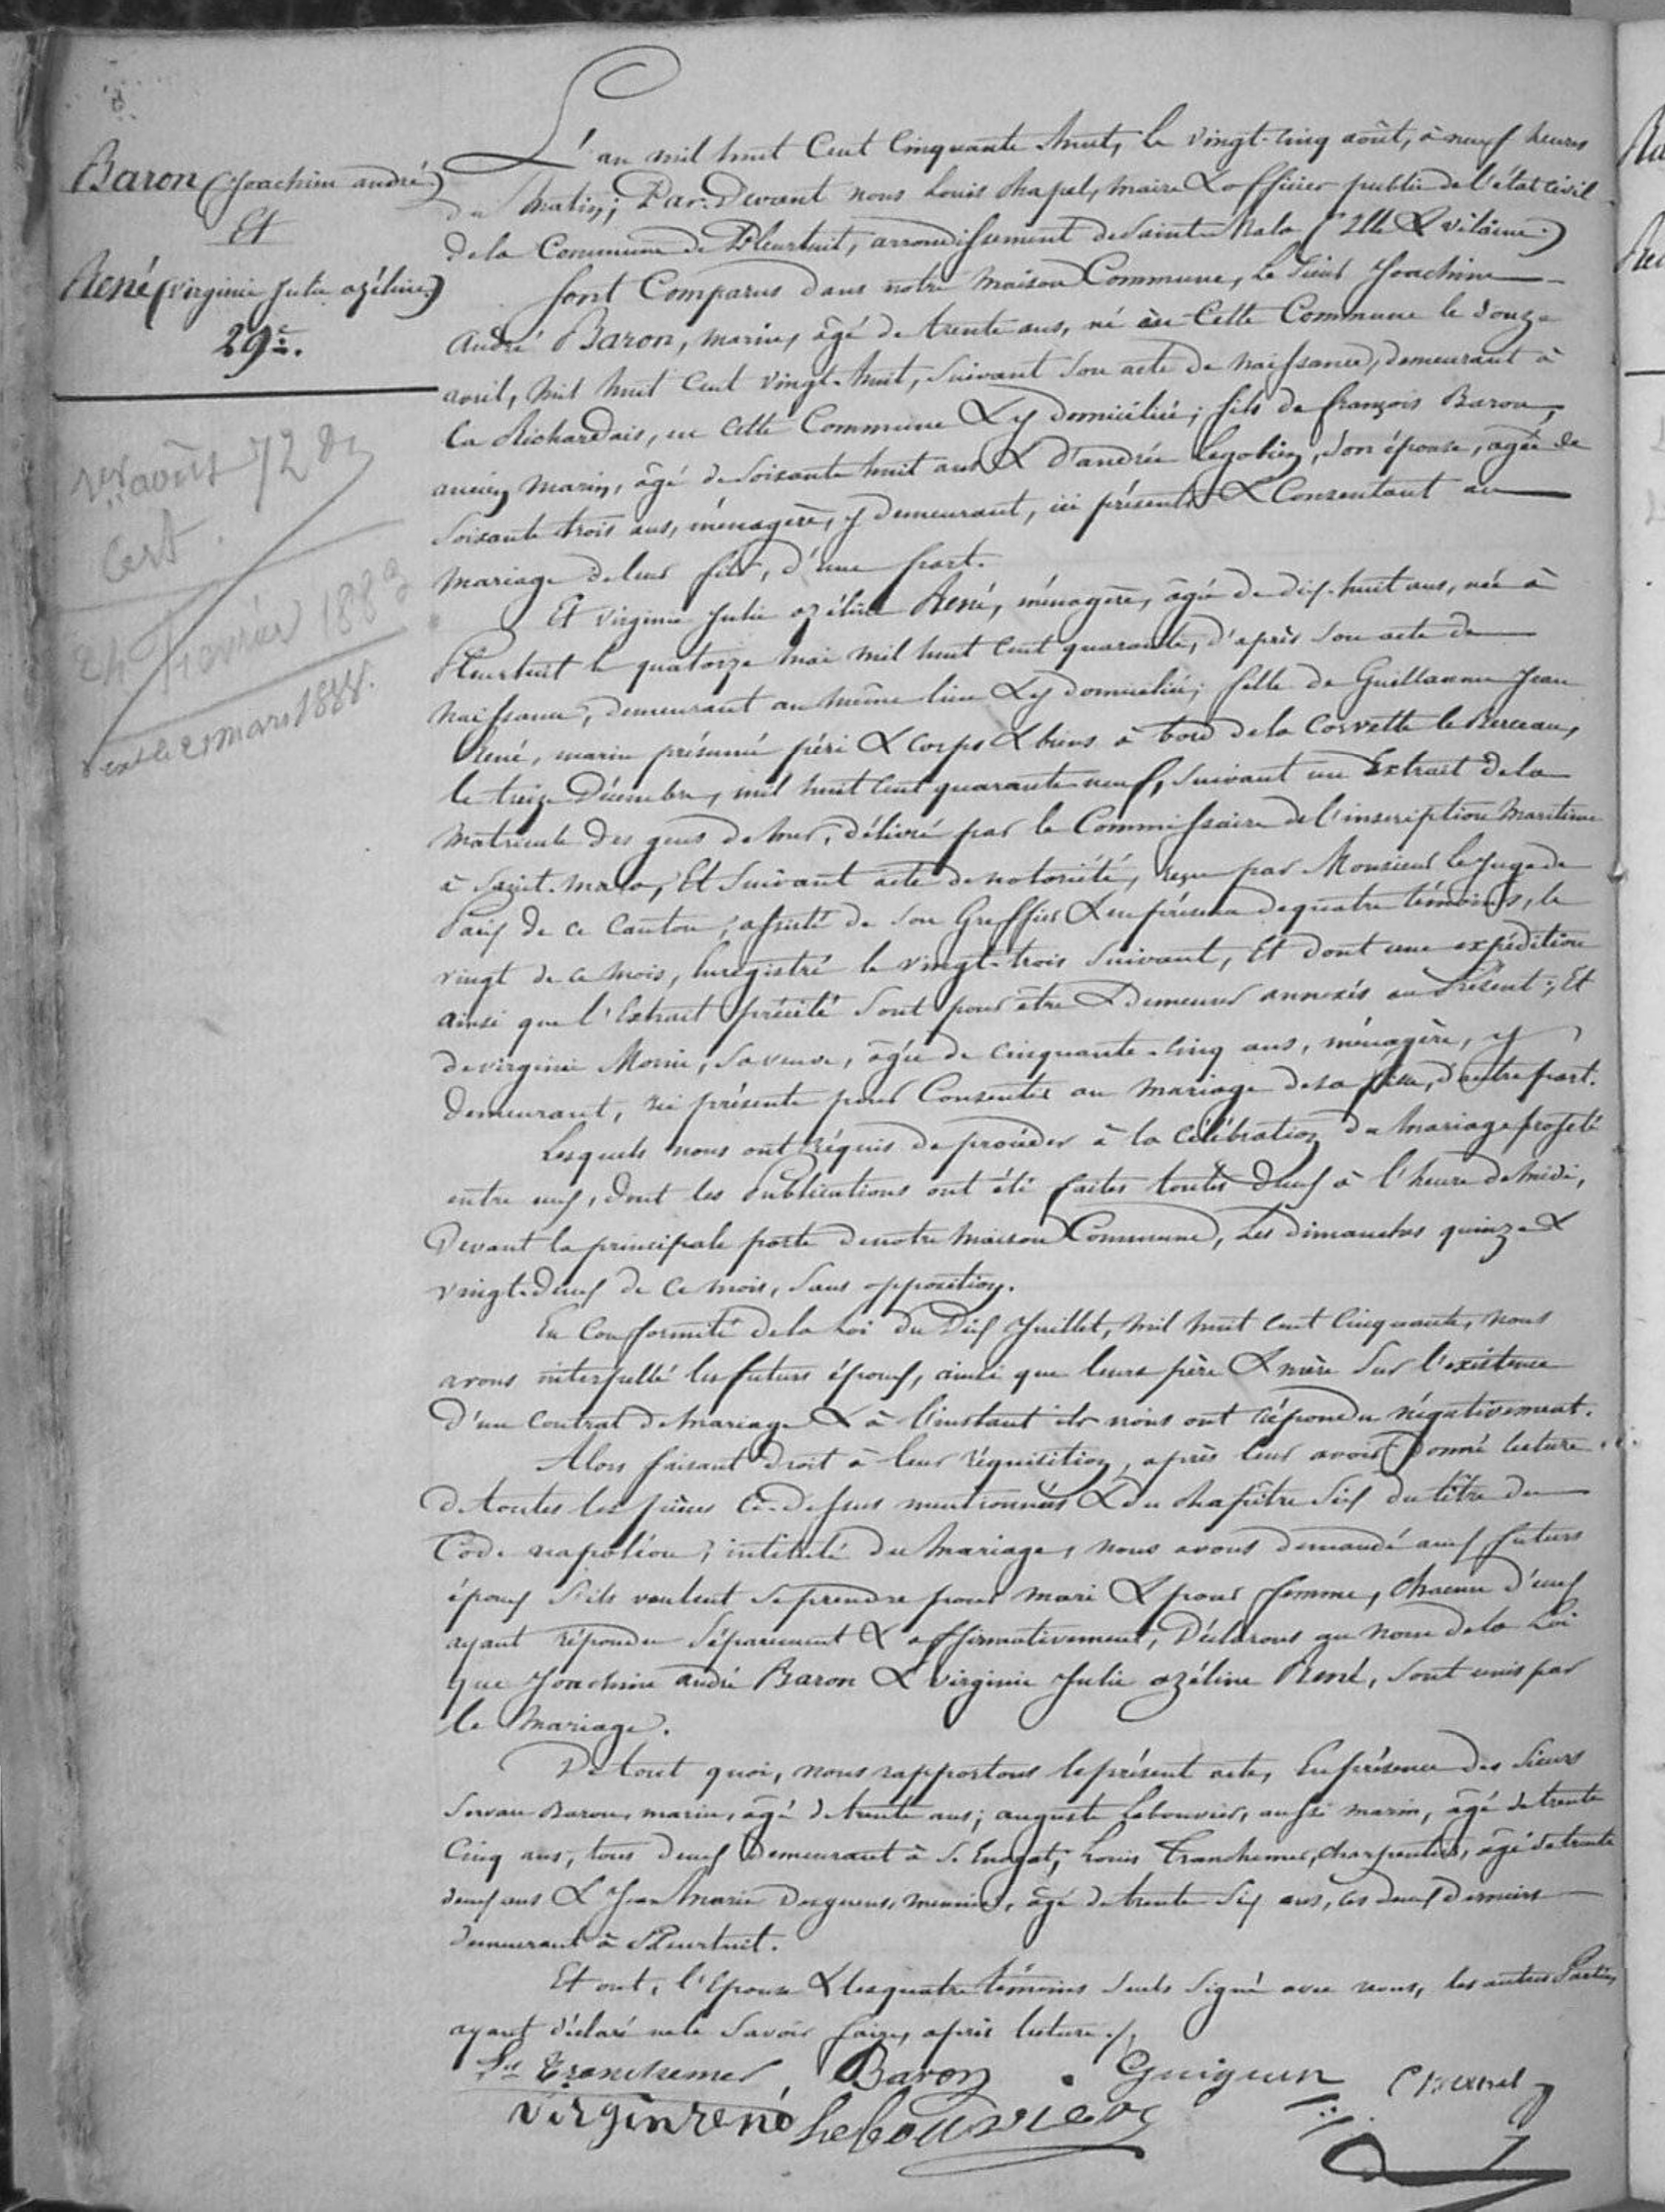 Baron (Joachim andré)
Et
René (virginie Julie azéline)
29e.
1er août 72 Dz
Cert
Février 188
mars 1888.
L'an mil huit Cent Cinquante huit, le vingt-cinq août, à neuf heures
du Matin; Par-Devant nous Louis Chapel, Maire & officier public de l'état civil
de la Commune de Pleurtuit, arrondissement de Saint-Malo (Ille & vilaine.)
Sont Comparus dans notre maison Commune, Le Sieur Joachim
André Baron, marin, âgé de trente ans, né en Cette Commune le Douze
avril, Mil huit Cent vingt-huit, suivant son acte de naissance, demeurant à
La Richardais, en cette Commune & y domicilié; fils de françois Baron,
ancien Marin, âgé de Soixante huit ans & d'andrée Legobien, son épouse, agée de
Soixante trois ans, ménagère, y demeurant, ici présents & Consentant au
Mariage de leur fils, d'une part.
Et virginie Julie azéline René, ménagère, âgée de dix-huit ans, née à
Pleurtuit le quatorze Mai mil huit cent quarante, d'après son acte de
Naissance, demeurant au même lieu & y domiciliée; fille de Guillaume Jean
René, marin présumé péri & corps & biens à bord de la Corvette le Berceau,
le treize Décembre, mil huit cent quarante neuf, suivant un Extrait de la
Matricule des gens de Mer, délivré par le Commissaire de l'inscription Maritime
à Saint-Malo, Et Suivant acte de notoriété, reçu par Monsieur le Juge de
Paix de ce Canton, assisté de son Greffier & en présence de quatre témoins, le
vingt de ce Mois, Enregistré le vingt-trois suivant, Et dont une expédition
ainsi que l'Extrait précité sont pour être & Demeurer annexés au Présent; Et
de virginie Morin, sa veuve, âgée de cinquante-cinq ans, ménagère, y
Demeurant, ici présente pour Consentir au Mariage de sa fille, D'autre part.
Lesquels nous ont réquis de procéder à la Célébration du Mariage projeté
entre eux, dont les Publications ont été faites toutes deux à l'heure de Midi,
Devant la principale porte de notre Maison Commune, Les Dimanches quinze &
vingt-Deux de ce Mois, sans opposition.
En Conformité de la Loi du Dix Juillet, Mil huit Cent Cinquante, nous
avons interpellé les futurs époux, ainsi que leurs père & mère sur l'existence
D'un Contrat de Mariage & à l'instant ils nous ont répondu négativement.
Alors faisant droit à leur réquisition, après leur avoir donné lecture
de toutes les pièces Ci-dessus mentionnées & du chapitre Six du titre du
Code napoléon, intitulé du Mariage, nous avons demandé aux futurs
époux s'ils veulent se prendre pour Mari & pour femme, Chacun d'eux
ayant répondu séparément & affirmativement, Déclarons au nom de la Loi
que Joachim andré Baron & virginie Julie azéline René, sont unis par
le Mariage.
De tout quoi, nous rapportons le présent acte, En présence des Sieurs
Servan Baron, marin, âgé de trente ans; auguste Lebouvier, aussi marin, âgé de trente
Cinq ans, tous Deux Demeurant à St Enogat; Louis Tranchemer, charpentier, âgé de trente
deux ans & Jean Marie meunier, âgé de trente Six ans, ces deux derniers
demeurant à Pleurtuit.
Et ont, l'Epouse & les quatre témoins Seuls Signé avec nous, les autres Parties
ayant déclaré ne le Savoir faire, après lecture.
Ls Tranchemer Baron Guiguen Chapel
virgin rené Lebouvier